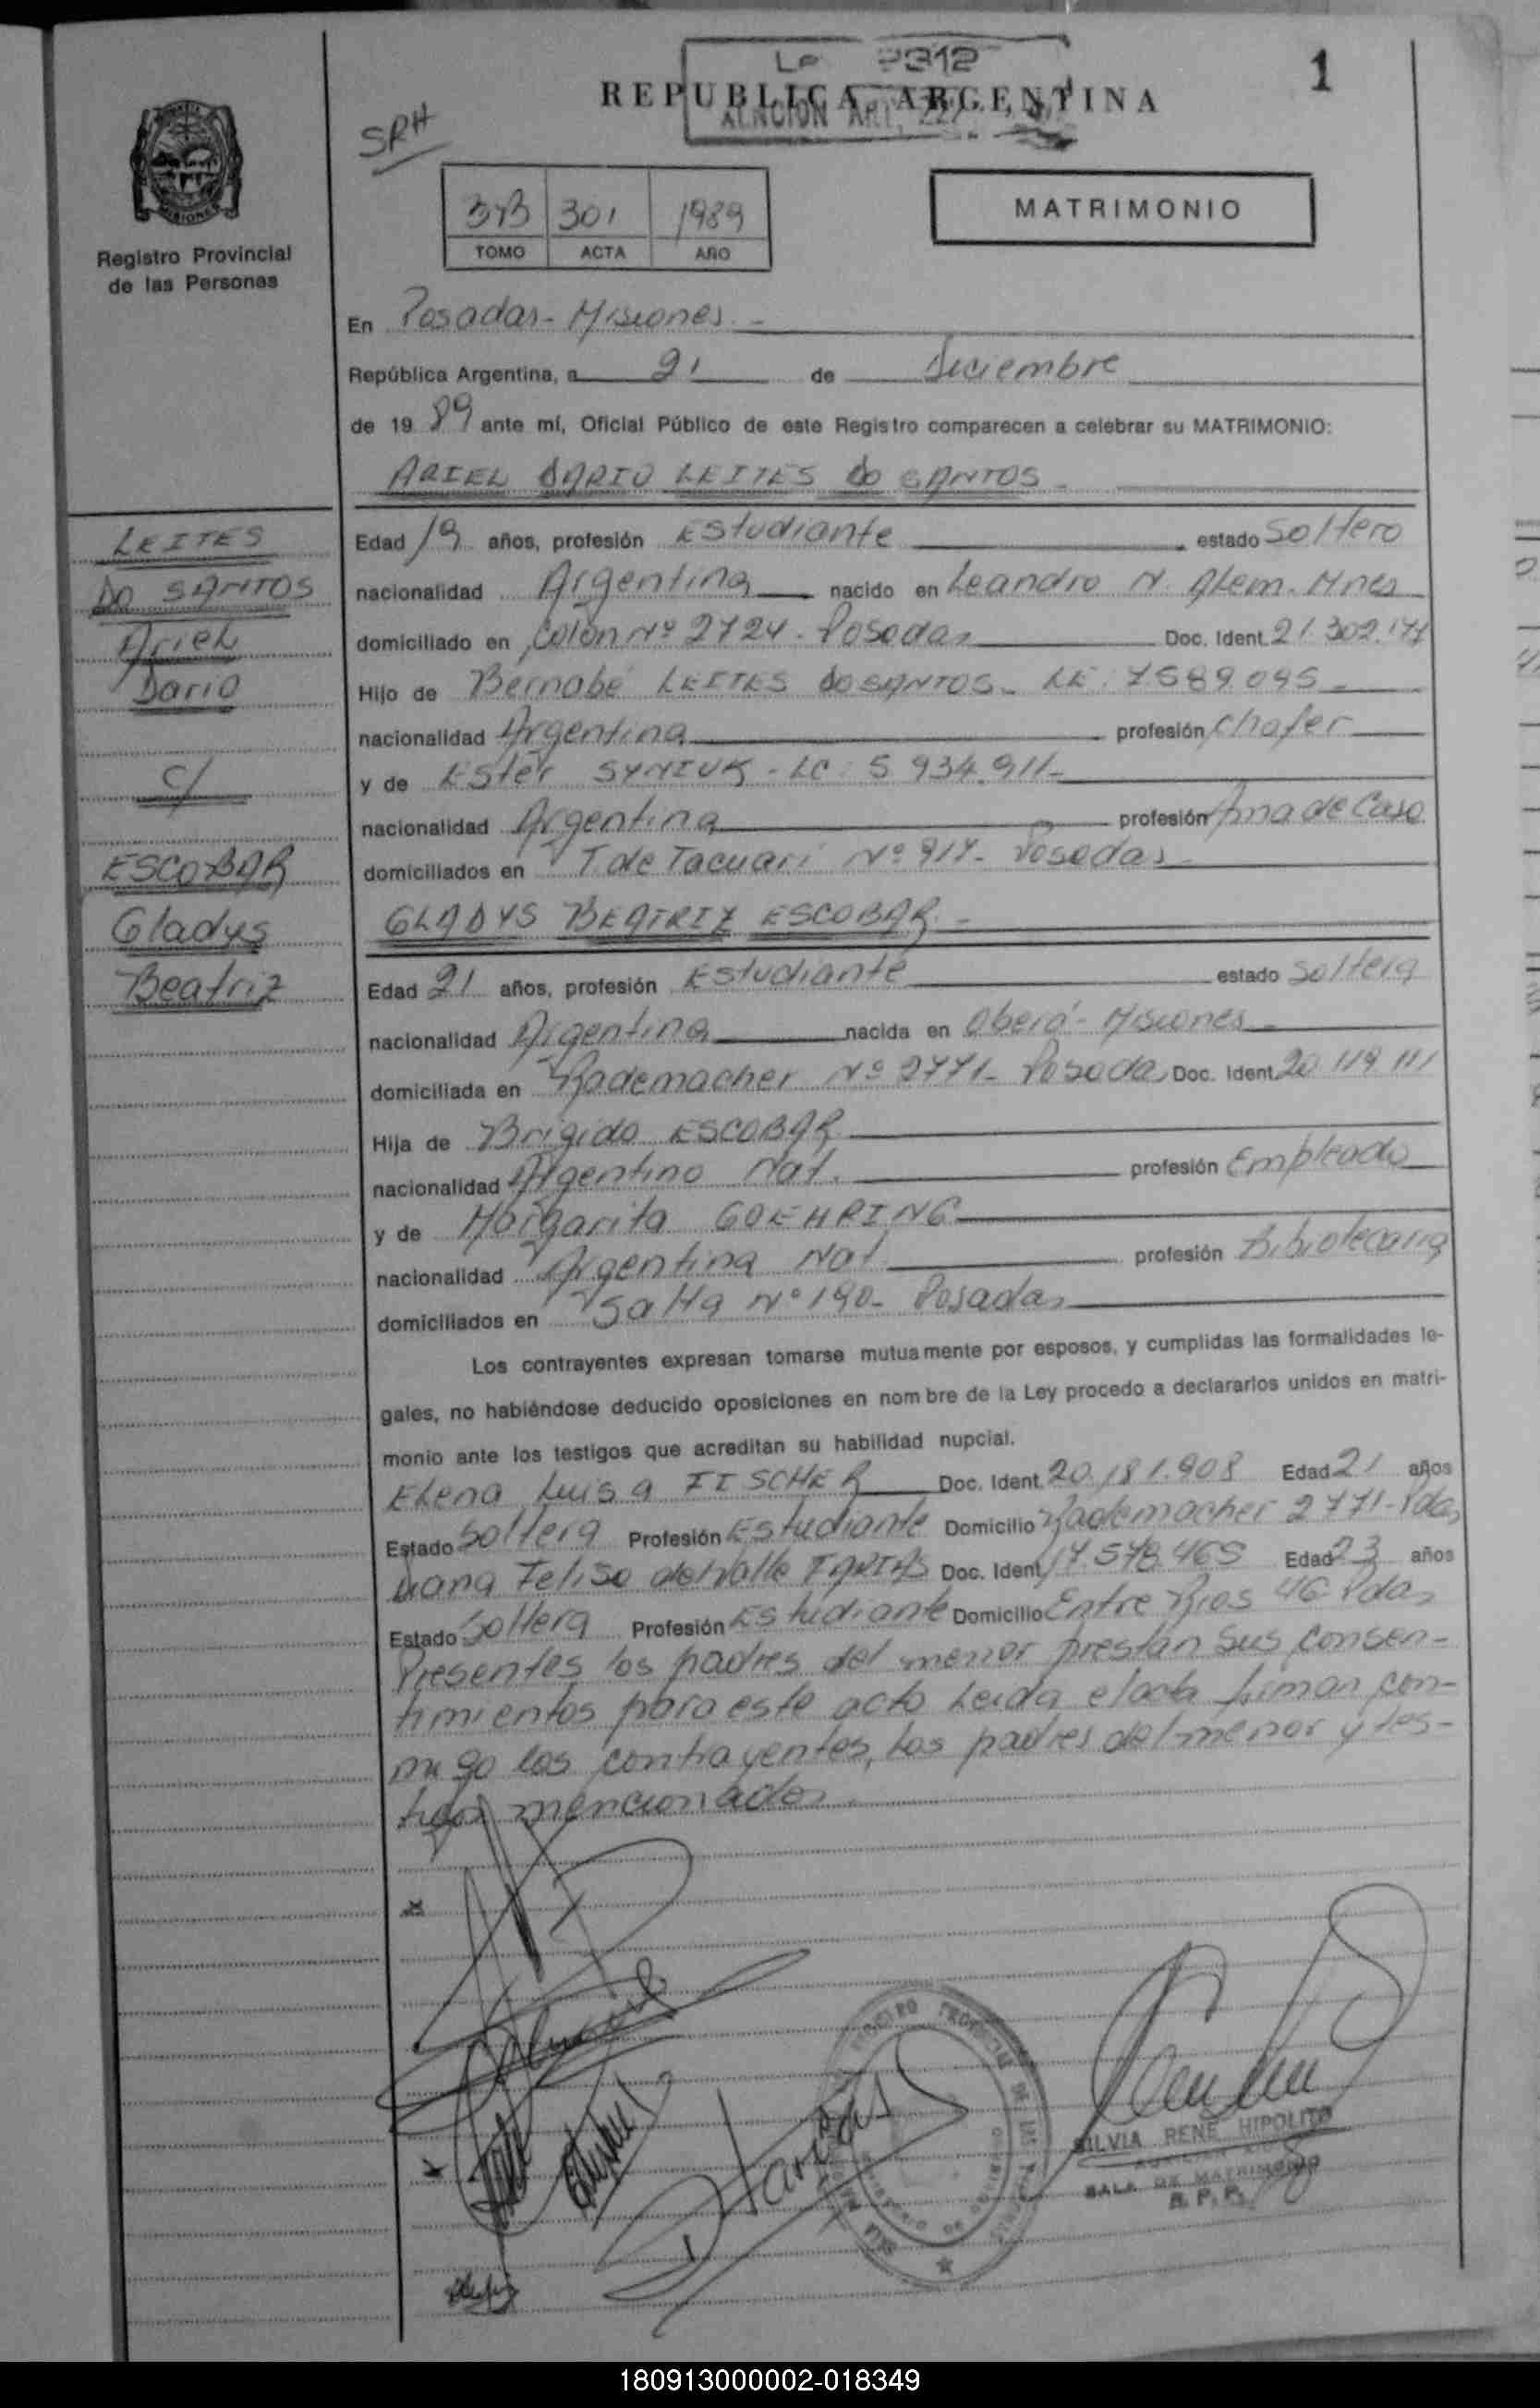 1
Lº 2312
REPUBLICA ARGENTINA
SRH
301 1989
TOMO ACTA AÑO
MATRIMONIO
MISIONES
Registro Provincial
de las Personas
En Posadas - Misiones. -
República Argentina, a 21 de Diciembre
de 19 89 ante mí, Oficial Público de este Registro comparecen a celebrar su MATRIMONIO:
ARIEL DARIO LEITES Do SANTOS -
LEITES
DO SANTOS
Ariel
Dario
c/
ESCOBAR
Gladys
Beatriz
Edad 19 años, profesión Estudiante estado Soltero
nacionalidad Argentina nacido en Leandro N. Alem. Mnes
domiciliado en Colón Nº 2724 - Posadas Doc. Ident. 21.302.177
Hijo de Bernabé LEITES DO SANTOS - LE: 7589095 -
nacionalidad Argentina profesión Chofer
y de Ester SYNIUK - LC: 5 934.911 -
nacionalidad Argentina profesión Ama de Casa
domiciliados en T. de Tacuari Nº 917 - Posadas -
GLADYS BEATRIZ ESCOBAR. -
Edad 21 años, profesión Estudiante estado Soltera
nacionalidad Argentina nacida en Oberá - Misiones -
domiciliada en Rademacher Nº 2771 - Posadas Doc. Ident. 20 119 111
Hija de Brígido ESCOBAR
nacionalidad Argentino Nat. profesión Empleado
y de Margarita GOEHRING
nacionalidad Argentina Nat. profesión Bibiotecaria
domiciliados en Salta Nº 190 - Posadas
Los contrayentes expresan tomarse mutuamente por esposos, y cumplidas las formalidades le-
gales, no habiéndose deducido oposiciones en nombre de la Ley procedo a declararlos unidos en matri-
monio ante los testigos que acreditan su habilidad nupcial.
Elena Luisa FISCHER Doc. Ident. 20.181.908 Edad 21 años
Estado Soltera Profesión Estudiante Domicilio Rademacher 2771 - Pdas
Diana Felisa del Valle FARIAS Doc. Ident. 17.578.465 Edad 23 años
Estado Soltera Profesión Estudiante Domicilio Entre Rios 46 Pdas
Presentes los padres del menor prestan sus consen-
timientos para este acto Leída el acta firman con-
migo los contrayentes, los padres del menor y tes-
tigos mencionados.
Farias
SILVIA RENE HIPOLITO
SALA DE MATRIMONIO
R. P. P.
180913000002-018349